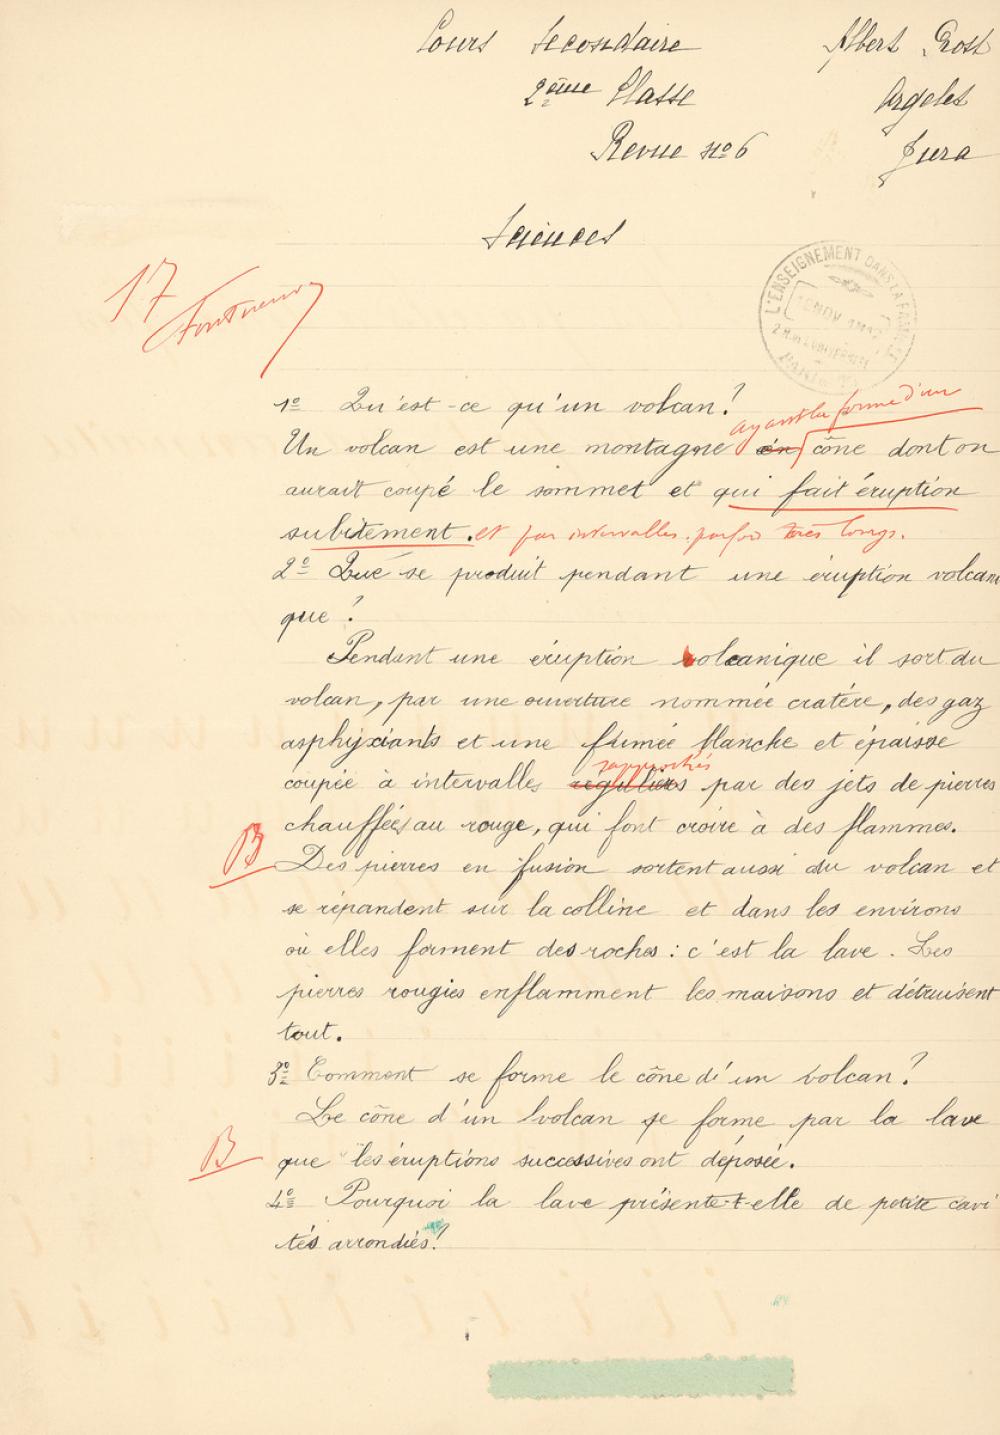 Cours Secondaire Albert Grost
2ème Classe Argelès
Revue no 6 Jura
Sciences
17
L'ENSEIGNEMENT DANS LA FAMILLE
NOV
1o Qu'est-ce qu'un volcan?
ayant la forme d'un
Un volcan est une montagne en cône dont on
aurait coupé le sommet et qui fait éruption
subitement. et par intervalles parfois très longs.
2o Que se produit pendant une éruption volcani
que?
Pendant une éruption volcanique il sort du
volcan, par une ouverture nommée cratère, des gaz
asphyxiants et une fumée blanche et épaisse
rapprochés
coupée à intervalles réguliers par des jets de pierres
chauffées au rouge, qui font croire à des flammes.
B Des pierres en fusion sortent aussi du volcan et
se répandent sur la colline et dans les environs
où elles forment des roches: c'est la lave. Les
pierres rougies enflamment les maisons et détruisent
tout.
3o Comment se forme le cône d'un volcan?
Le cône d'un volcan se forme par la lave
B que les éruptions successives ont déposée.
4o Pourquoi la lave présente-t-elle de petite cavi
tés arrondies?